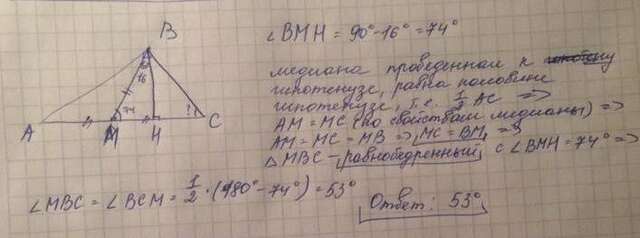 B
16
74
A
M
H
C
?
∠BMH = 90°-16° = 74°
медиана проведенная к
гипотенузе, равна половине
гипотенузе, т.е. 1/2 AC =>
AM = MC (по свойствам медианы) =>
AM = MC = MB => MC = BM, =>
△MBC - равнобедренный с ∠BMH = 74° =>
∠MBC = ∠BCM = 1/2 · (180° - 74°) = 53°
Ответ: 53°